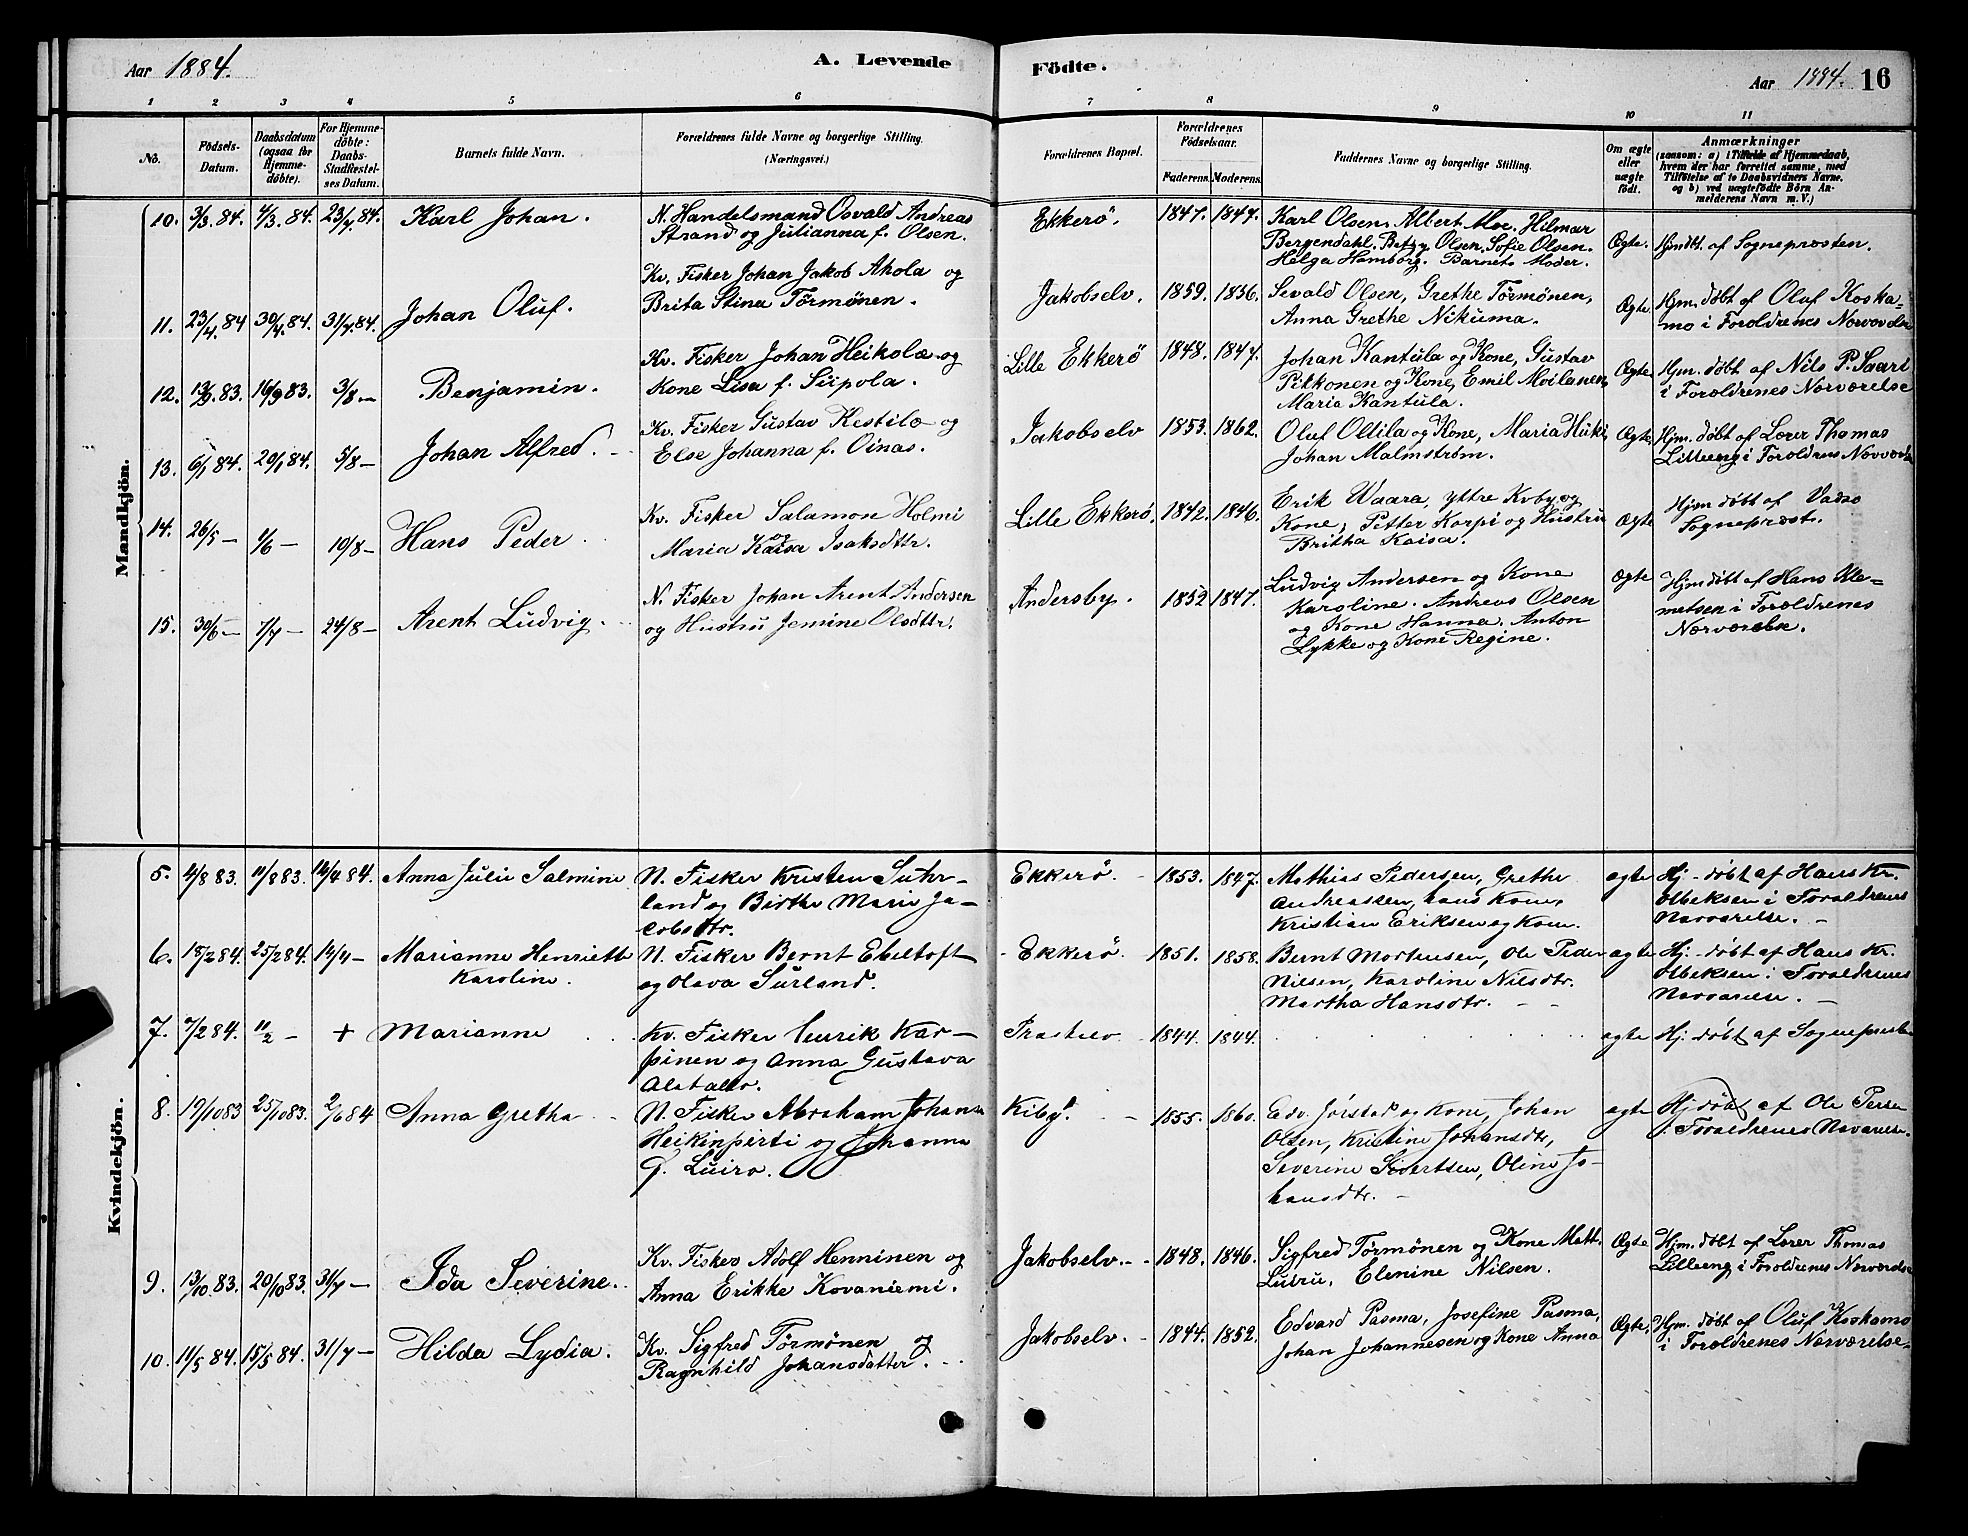 Aar 1884.
A. Levende
Födte.
Aar 1884. 16
1 2 3 4 5 6 7 8 9 10 11
No.
Födsels-
Datum.
Daabsdatum
(ogsaa for
Hjemme-
døbte).
For Hjemme-
døbte:
Daabs-
Stadfæstel-
ses Datum.
Barnets fulde Navn.
Forældrenes fulde Navne og borgerlige Stilling.
(Næringsvei.)
Forældrenes Bopæl.
Forældrenes
Födselsaar.
Faderens. Moderens.
Faddernes Navne og borgerlige Stilling.
Om ægte
eller
uægte
født.
Anmærkninger
(saasom: a) i Tilfælde af Hjemmedaab,
hvem der har forrettet samme, med
Tilføielse af to Daabsvidners Navne.
og b) ved uægtefødte Börn An-
melderens Navn m. V.)
Mandkjön.
10. 3/3. 84. 4/3. 84. 23/4. 84. Karl Johan.
N. Handelsmand Osvald Andreas
Strand og Julianna f. Olsen.
Ekkerö. 1847. 1847.
Karl Olsen, Albert Moe, Hilmar
Bergendahl, Betzy Olsen, Sofie Olsen.
Helga Hamborg. Barnets Moder.
Ægte. Hjmdbt. af Sognepræsten.
11. 23/4. 84 30/4. 84. 31/7. 84. Johan Oluf.
Kv. Fisker Johan Jakob Ahola og
Brita Stina Törmönen.
Jakobselv. 1859. 1856.
Sevald Olsen, Grethe Törmönen,
Anna Grethe Nikuma.
Ægte. Hjm. døbt af Oluf Koska-
mo i Foroldrenes
12. 13/9. 83. 16/9 83. 3/8 — Benjamin.
Kv. Fisker Johan Heikola og
Kone Lisa f. Siipola.
Lille Ekkerö 1848. 1847.
Johan Kantula og Kone, Gustav
Pikkonen og Kone, Emil Moilanen,
Maria Kantula.
Ægte Hjm. døbt af Nils P. Saari
i Foroldrenes Nærværelse
13. 6/1 84. 20/1 84. 5/8 — Johan Alfred.
Kv. Fisker Gustav Kestilä og
Else Johanna f. Oinas.
Jakobselv 1853. 1862.
Oluf Ollila og Kone, Maria Huki,
Johan Malmström.
Ægte. Hjm. døbt af Lærer Thomas
Lilleeng i Foroldrens
14. 26/5 — 1/6 — 10/8 — Hans Peder
Kv. Fisker Salamon Holmi
og
Maria Kaisa Isaksdttr.
Lille Ekkerö. 1842. 1846.
Erik Waara, yttre Kvby, og
Kone, Petter Korpi og Hustru
Britha Kaisa.
Ægte Hjm. døbt af Vadsø
Sognepræst.
15. 30/6 — 1/7 — 24/8 — Arent Ludvig.
N. Fisker Johan Arent Andersen
og Hustru Jemine Olsdttr.
Andersby. 1852 1847.
Ludvig Andersen og Kone
Karoline. Andreas Olsen
og Kone Hanna. Anton
Lykke og Kone Regine.
Ægte Hjm døbt af Hans Kle-
metsen i Foroldrenes
Nærværelse.
Kvindekjön.
5. 4/8 83. 11/8 83. 14/4 84. Anna Julie Salmine
N. Fisker Kristen Suhr-
land og Birthe Marie Ja-
cobsdtr.
Ekkerö. 1853. 1847.
Mathias Pedersen, Grethe
Andreassen, hans Kone,
Kristian Eriksen og Kone.
ægte Hj. døbt af Hans Kr.
Olbeksen i Foraldrenes
Navarelse. —
6. 18/2 84. 25/2 84. 14/4 — Marianne Henriette
Karoline.
N. Fisker Bernt Ebeltoft
og Olava Surland.
Ekkerö. 1851. 1858.
Bernt Mortensen, Ole Peder
Nilsen, Karoline Nilsdtr.
Martha Hansdtr.
ægte Hj. døbt af Hans Kr.
Olbeksen i Foraldrenes
Navarelse. —
7. 7/2 84. 11/2 — + Marianne
Kv. Fisker Henrik Kar-
pinen og Anna Gustava
Alatalo.
Prastelv 1844. 1844.
ægte Hj. døbt af Sognepresten
8. 19/10 83 25/10 83. 2/6 84 Anna Gretha
N. Fisker Abraham Johans
Heikinpirti og Johanna
G. Luiro.
Kiby. — 1855. 1860.
Edv. Jørstad og Kone, Johan
Olsen, Kristine Johansdtr,
Severine Sivertsen, Oline Jo-
hansdtr. —
ægte Hj døbt af Ole Persen
i Foraldrenes Navarelse.
9. 13/10. 83. 20/10 83. 31/7 — Ida Severine.
Kv. Fisker Adolf Henninen og
Anna Erikke Kovaniemi.
Jakobselv. 1848. 1846.
Sigfred Törmönen og Kone, Matt.
Luiru, Elenine Nilsen.
Ægte Hjm. døbt af Lærer Thomas
Lilleeng i Foroldrenes
10. 11/5 84. 15/5 84. 31/7 — Hilda Lydia.
Kv. Sigfred Törmönen og
Ragnhild Johansdatter.
Jakobselv. 1844. 1852.
Edvard Pasma, Josefine Pasma,
Johan Johannesen og Kone Anna
Ægte. Hjm. døbt af Oluf Koskamo
i Foroldrenes Nærværelse.